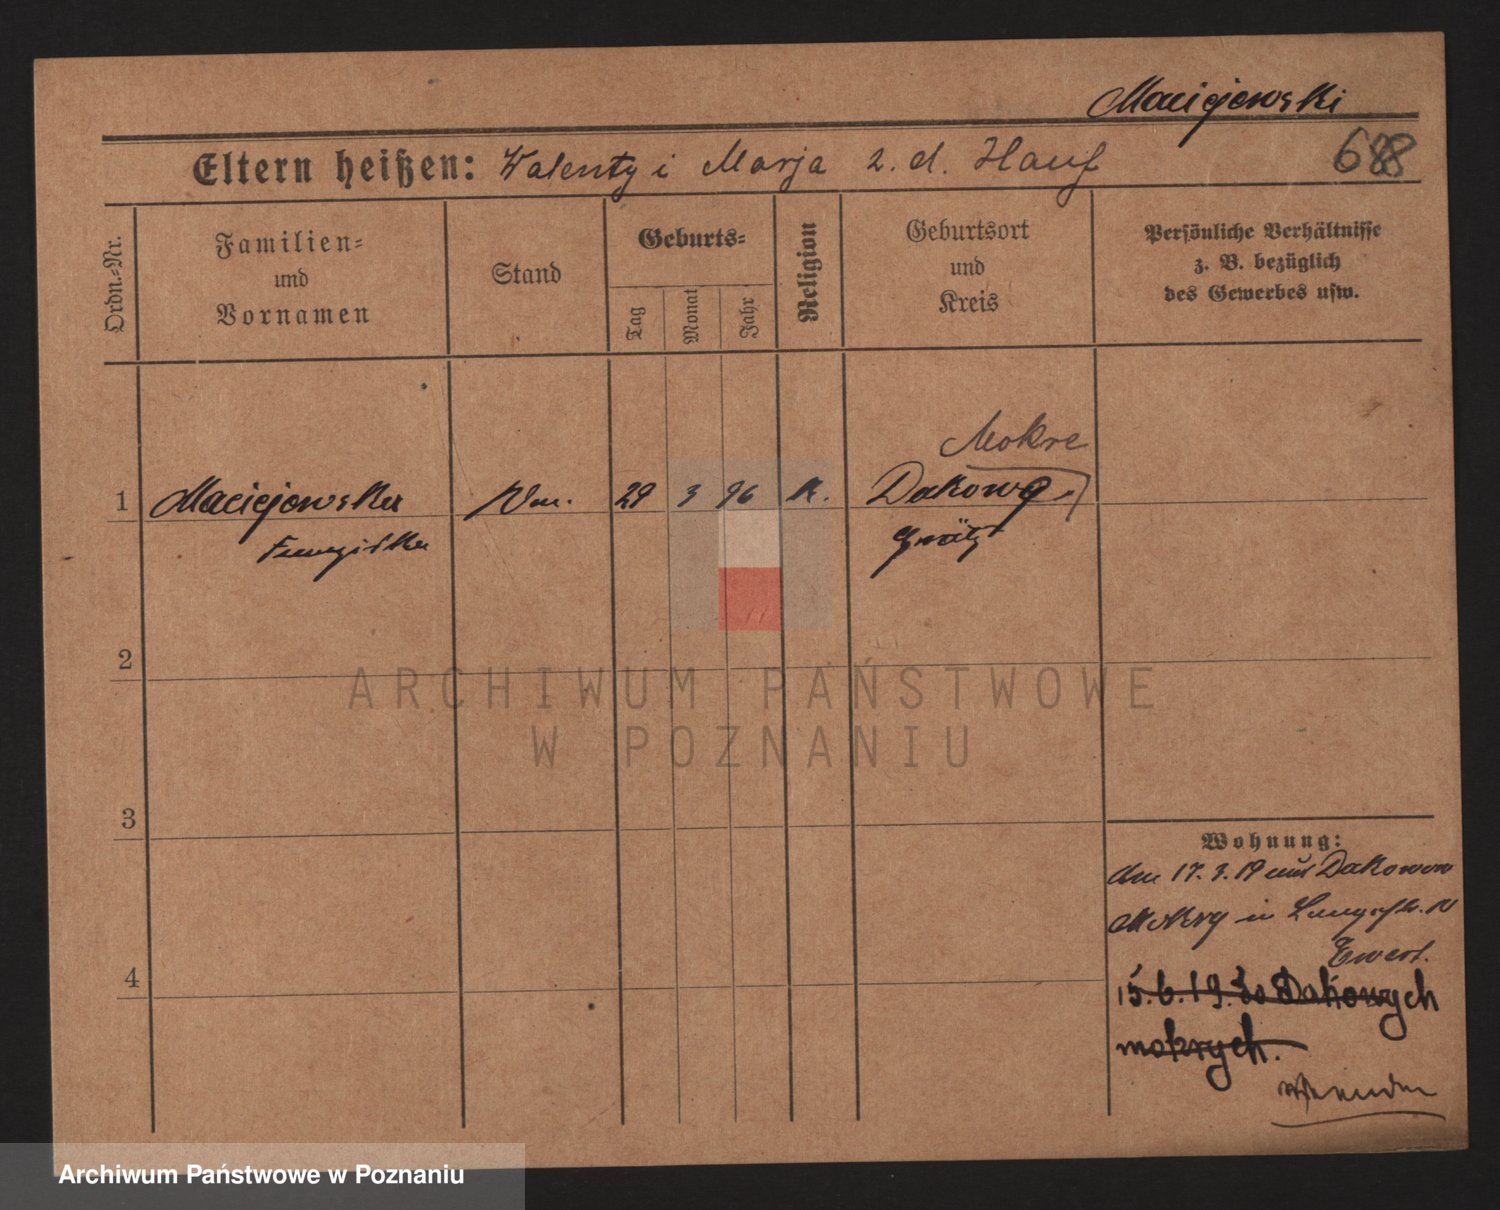 Maciejewski
688
Eltern heißen: Walenty i Marja z. d. Hauf
Ordn.-Nr.
Familien-
und
Vornamen
Stand
Geburts-
Tag
Monat
Jahr
Religion
Geburtsort
und
Kreis
Persönliche Verhältnisse
z. B. bezüglich
des Gewerbes usw.
Mokre
1 Maciejewska 29 3 96 K. Dakowy
Franziska Grätz
2
3
4
Wohnung:
am 17.3.19 aus Dakowow
Mokry in
15.6.19. do Dakowych
mokrych.
ARCHIWUM PAŃSTWOWE
W POZNANIU
Archiwum Państwowe w Poznaniu